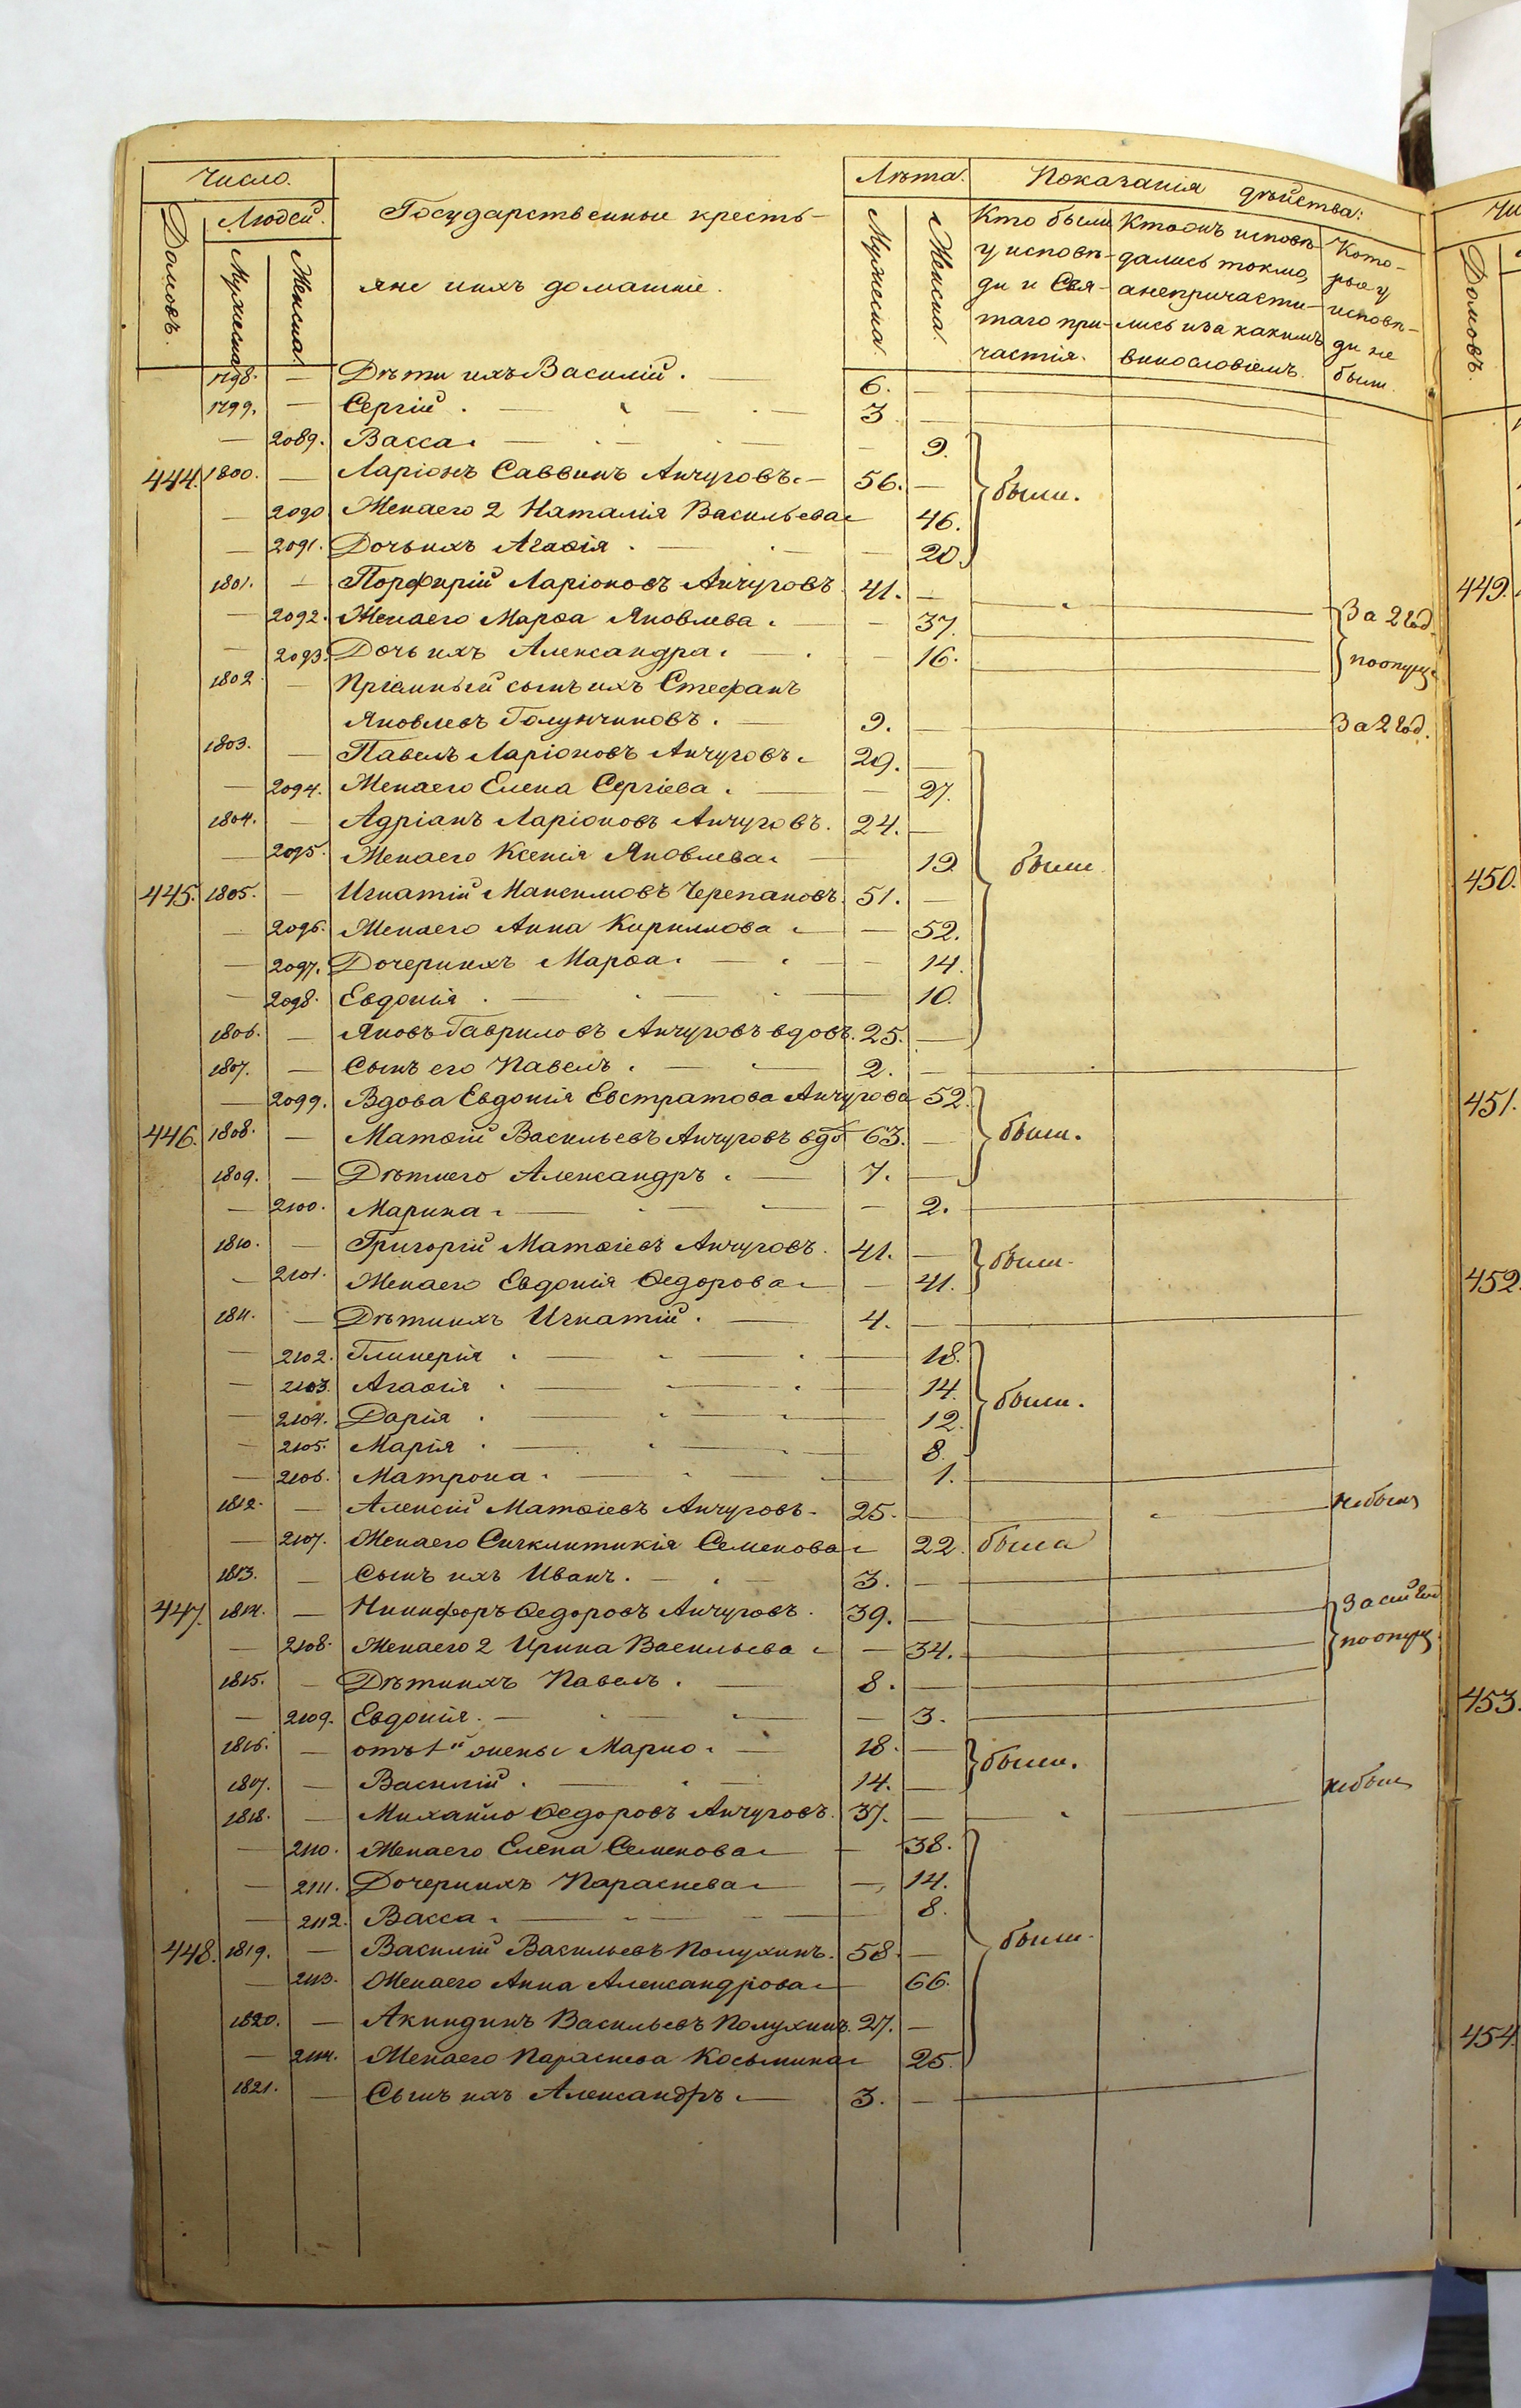 Число.
Людей.
Домовъ.
Мужеска
Женска.
Государственные кресть-
яне ихъ домашніе.
Лѣта.
Мужеска.
Женска.
Показанія дѣйства:
Кто были
у исповѣ-
ди и Свя-
таго при-
частія.
Кто онъ исповѣ-
дались токмо,
а не причасти-
лись и за какимъ
винословіемъ.
Кото-
рые у
исповѣ-
ди не
были.
1798. — Дѣти ихъ Василій. — 6. —
1799. — Сергій. — 3 —
— 2089. Васса. — 9.
444. 1800. — Ларіонъ Саввинъ Анчуговъ. — 56. — были.
— 2090 Жена его 2 Наталія Васильева 46.
— 2091. Дочь ихъ Агаѳія. — 20.
1801. — Порфирій Ларіоновъ Анчуговъ. 41. —
— 2092. Жена его Марѳа Яковлева. — 37. За 2 год.
— 2093. Дочь ихъ Александра. — 16. по опущ.
1802 — Пріемный сынъ ихъ Стефанъ
Яковлевъ Голунчиковъ. — 9. — За 2 год.
1803. — Павелъ Ларіоновъ Анчуговъ. 29. —
— 2094. Жена его Елена Сергіева. — 27.
1804. — Адріанъ Ларіоновъ Анчуговъ. 24. —
— 2095. Жена его Ксенія Яковлева. — 19 были
445. 1805. — Игнатій Максимовъ Черепановъ. 51. —
— 2096. Жена его Анна Кириллова — 52.
— 2097. Дочери ихъ Марѳа. — 14.
— 2098. Евдокія. — 10.
1806. — Яковъ Гавриловъ Анчуговъ вдовъ. 25. —
1807. — Сынъ его Павелъ. — 2. —
— 2099. Вдова Евдокія Евстратова Анчугова 52.
446. 1808. — Матѳій Васильевъ Анчуговъ вдо 63. — были.
1809. — Дѣти его Александръ. — 7. —
— 2100. Марина. — 2.
1810. — Григорій Матѳіевъ Анчуговъ. 41. — были.
— 2101. Жена его Евдокія Ѳедорова — 41.
1811. — Дѣти ихъ Игнатій. — 4. —
— 2102. Гликерія. — 18.
— 2103. Агаѳія. — 14.
— 2104. Дарія. — 12. были.
— 2105. Марія. — 8.
— 2106. Матрона. — 1.
1812. — Алексій Матѳіевъ Анчуговъ. 25. — не былъ
— 2107. Жена его Синклитикія Семенова 22. была
1813. — Сынъ ихъ Иванъ. — 3. —
447. 1814. — Никифоръ Ѳедоровъ Анчуговъ. 39. —
— 2108. Жена его 2 Ирина Васильева — 34. по опущ
1815. — Дѣти ихъ Павелъ. — 8. —
— 2109. Евдокія. — 3.
1816. — отъ 1й жены Марко. — 18. — были.
1817. — Василій. — 14. —
1818. — Михайло Ѳедоровъ Анчуговъ. 37. — не былъ
— 2110. Жена его Елена Семенова — 38.
— 2111. Дочери ихъ Параскева — 14.
— 2112. Васса. — 8.
448. 1819. — Василій Васильевъ Полухинъ. 58. — были.
— 2113. Жена его Анна Александрова — 66.
1820. — Акиндинъ Васильевъ Полухинъ. 27. —
— 2114. Жена его Параскева Косьмина 25.
1821. — Сынъ ихъ Александръ. — 3. —
Домовъ.
449.
450.
451.
452.
453.
454